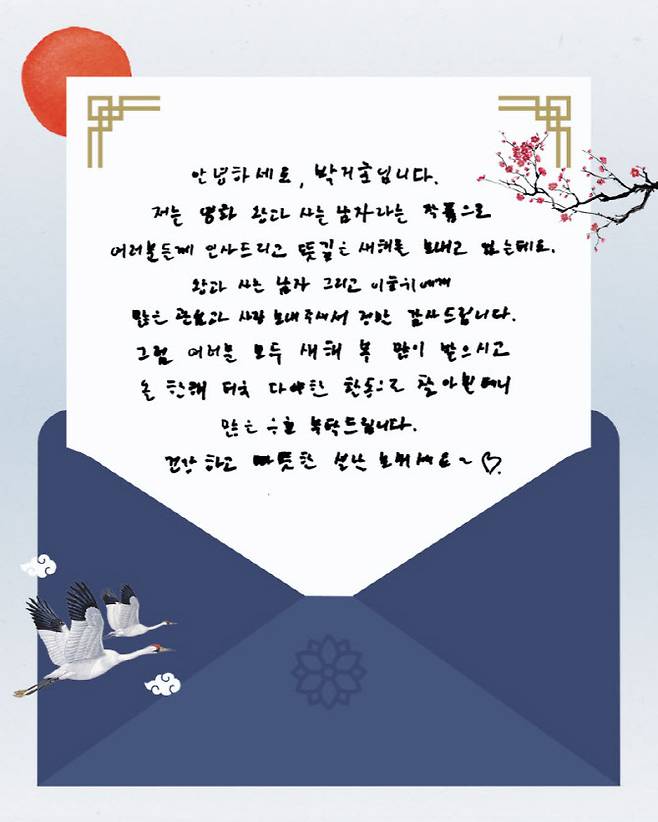 안녕하세요, 박지훈입니다.
저는 영화 왕과 사는 남자라는 작품으로
여러분들께 인사드리고 뜻깊은 새해를 보내고 있는데요.
왕과 사는 남자 그리고 이홍위에게
많은 관심과 사랑 보내주셔서 정말 감사드립니다.
그럼 여러분 모두 새해 복 많이 받으시고
올 한해 더욱 다양한 활동으로 찾아뵐테니
많은 응원 부탁드립니다.
건강하고 따뜻한 설날 보내세요~♡